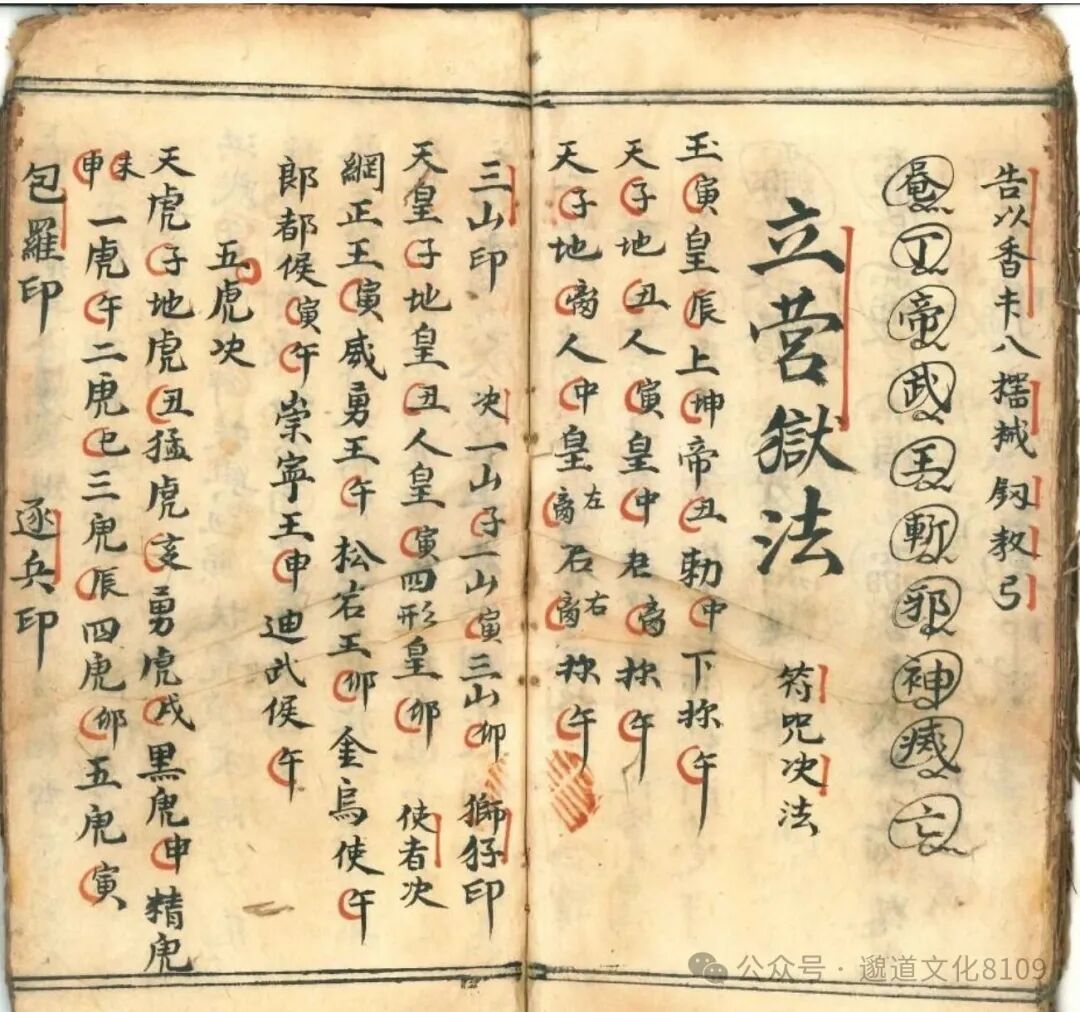 告以香卡八㨋械釼教弓
丁帝武王斬邪神滅亡
立营獄法
符咒决法
玉寅皇辰上坤帝丑勅中下㧱午
天子地丑人寅皇中君离㧱午
天子地离人中皇离左右离㧱午
三山印
决一山子一山寅三山卯
獅仔印
天皇子地皇丑人皇寅四形皇卯
使者次
綱正王寅威勇王午松岩王卯金烏使午
郎都侯寅午崇寧王申迪武侯午
五虎次
天虎子地虎丑猛虎亥勇虎戌黑虎申精虎
未申一虎午二虎巳三虎辰四虎卯五虎寅
包羅印
逐兵印
公众号·邈道文化8109